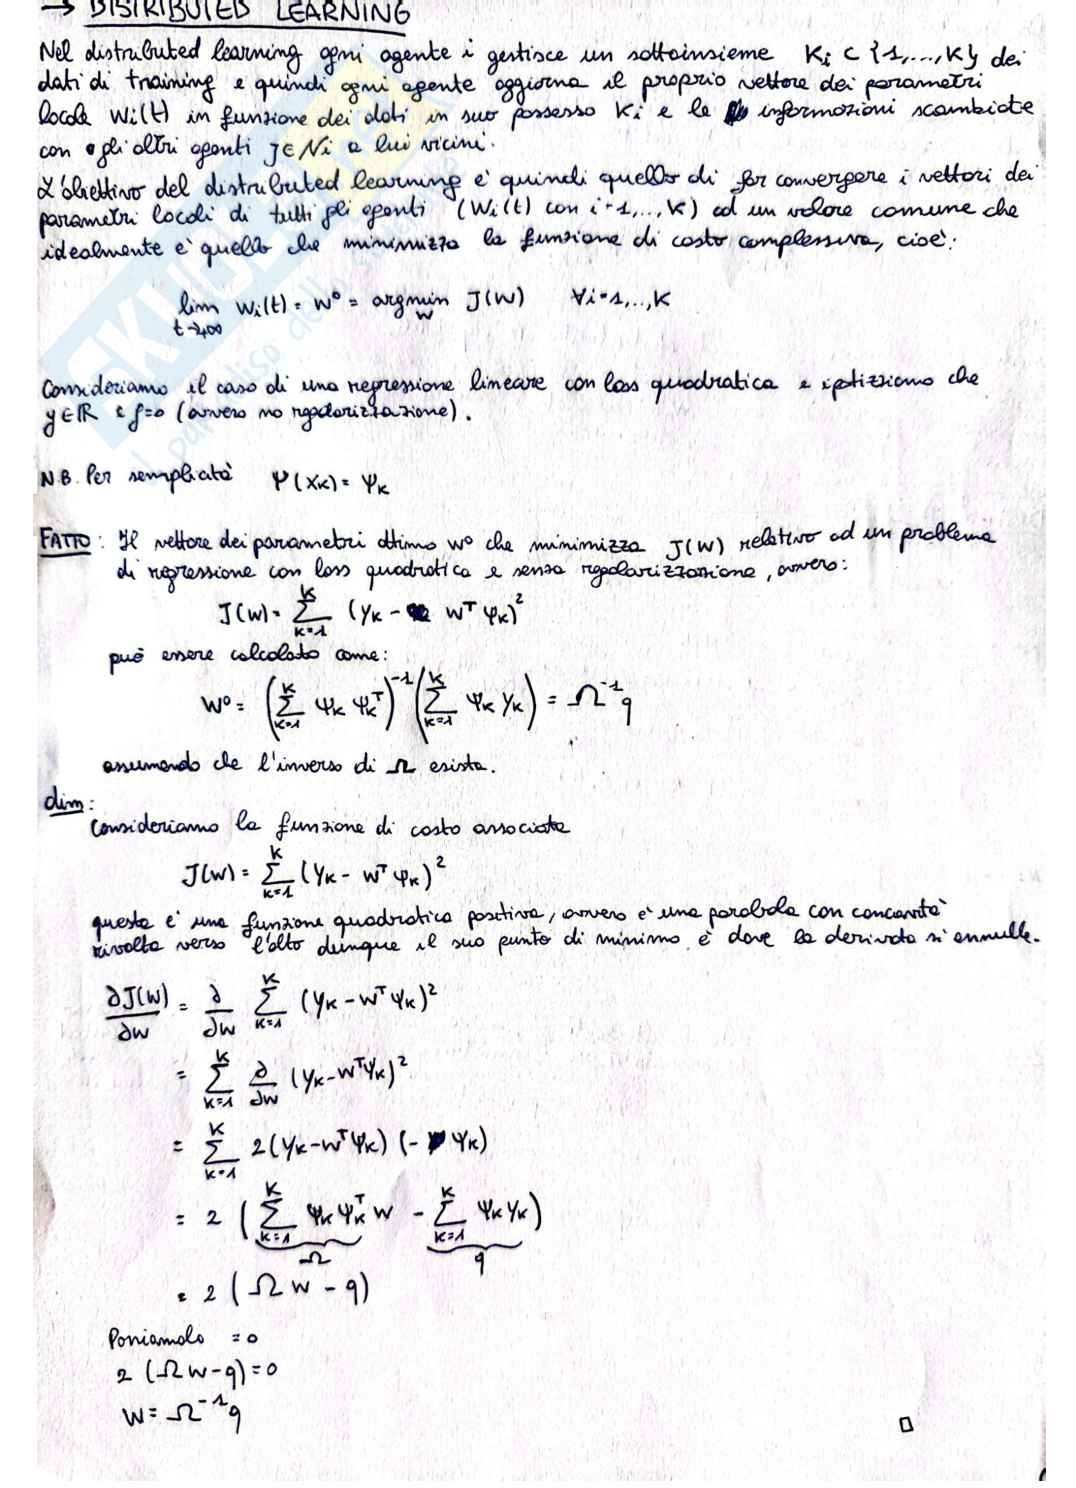 → DISTRIBUTED LEARNING
Nel distributed learning ogni agente i gestisce un sottoinsieme Ki ⊂ {1,...,K} dei
dati di training e quindi ogni agente aggiorna il proprio vettore dei parametri
locale Wi(t) in funzione dei dati in suo possesso Ki e le informazioni scambiate
con gli altri agenti J∈Ni a lui vicini.
L'obiettivo del distributed learning e' quindi quello di far convergere i vettori dei
parametri locali di tutti gli agenti (Wi(t) con i=1,..,K) ad un valore comune che
idealmente e' quello che minimizza la funzione di costo complessiva, cioe':
lim t→+∞ Wi(t) = W° = argmin W J(W) ∀i=1,..,K
Consideriamo il caso di una regressione lineare con loss quadratica e ipotizziamo che
y∈ℝ e ρ=0 (ovvero no regolarizzazione).
N.B. Per semplicità Ψ(XK) = ΨK
FATTO: Il vettore dei parametri ottimo W° che minimizza J(W) relativo ad un problema
di regressione con loss quadratica e senza regolarizzazione, ovvero:
J(W) = ∑_{K=1}^{K} (yK - W^T ΨK)^2
può essere calcolato come:
W° = (∑_{K=1}^{K} ΨK ΨK^T)^{-1} (∑_{K=1}^{K} ΨK yK) = Ω^{-1} q
assumendo che l'inverso di Ω esista.
dim:
Consideriamo la funzione di costo associata
J(W) = ∑_{K=1}^{K} (yK - W^T ΨK)^2
questa e' una funzione quadratica positiva, ovvero e' una parabola con concavità
rivolta verso l'alto dunque il suo punto di minimo è dove la derivata si annulla.
∂J(W)/∂W = ∂/∂W ∑_{K=1}^{K} (yK - W^T ΨK)^2
= ∑_{K=1}^{K} ∂/∂W (yK - W^T ΨK)^2
= ∑_{K=1}^{K} 2(yK - W^T ΨK) (- ΨK)
= 2 (∑_{K=1}^{K} ΨK ΨK^T W - ∑_{K=1}^{K} ΨK yK)
Ω q
= 2 (Ω W - q)
Poniamolo = 0
2 (Ω W - q) = 0
W = Ω^{-1} q
□